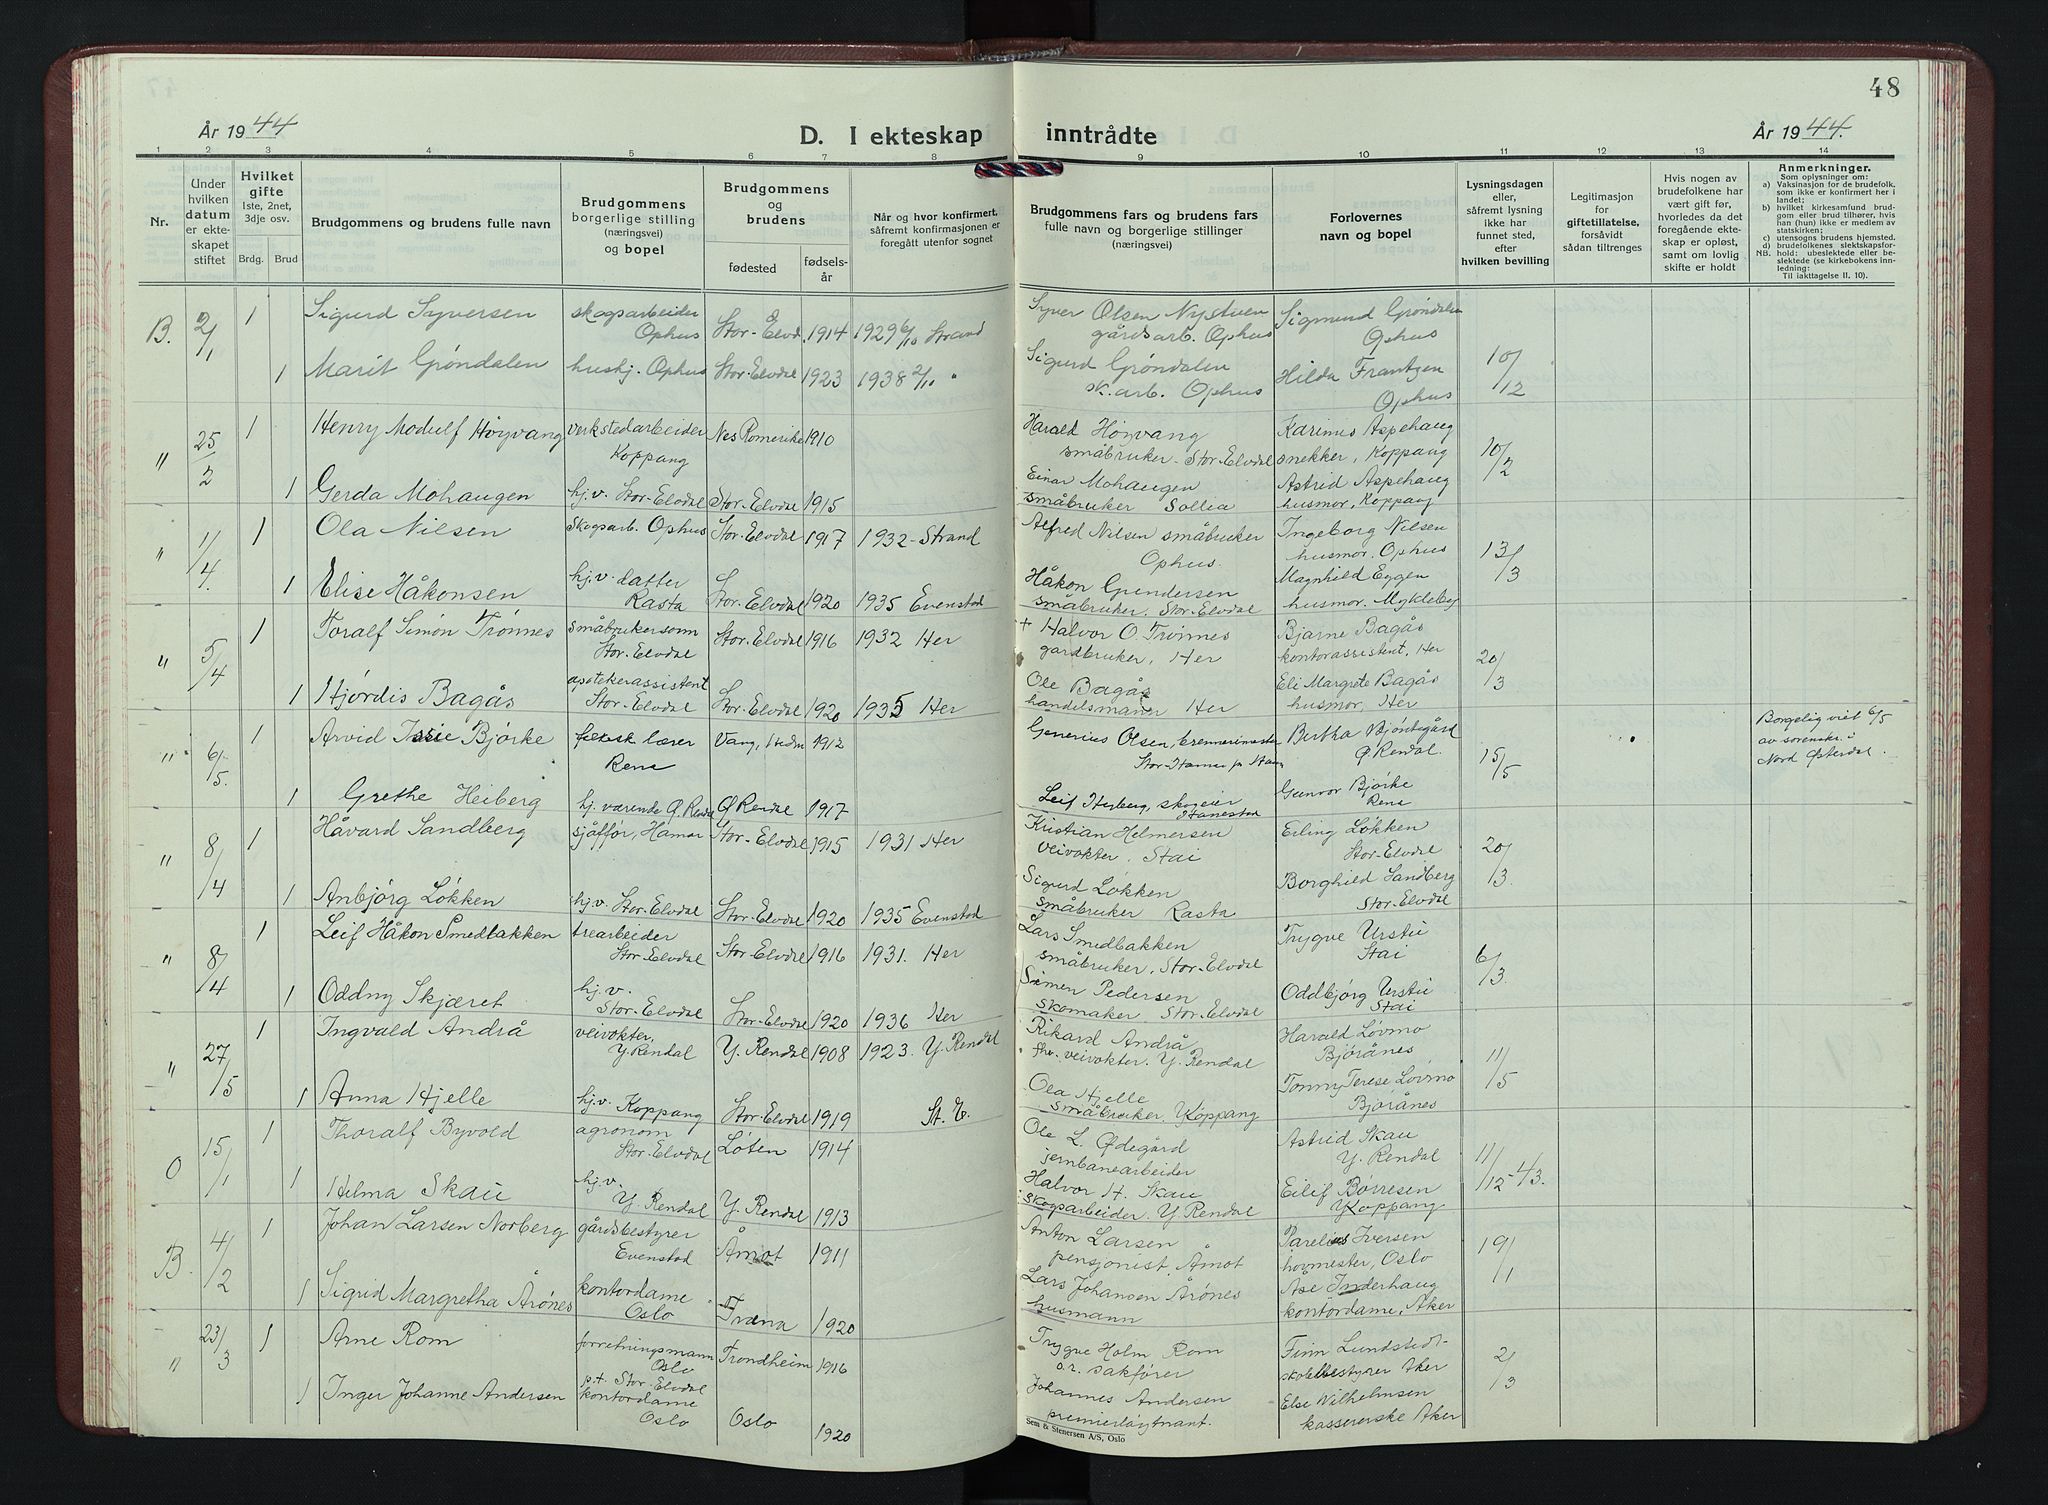 48
År 1944
D. I ekteskap inntrådte
År 1944.
1 2 3 4 5 6 7 8 9 10 11 12 13 14
Nr.
Under hvilken datum er ekteskapet stiftet
Hvilket gifte 1ste, 2net, 3dje osv.
Brdg. Brud
Brudgommens og brudens fulle navn
Brudgommens borgerlige stilling (næringsvei) og bopel
Brudgommens og brudens
fødested
fødselsår
Når og hvor konfirmert, såfremt konfirmasjonen er foregått utenfor sognet
Brudgommens fars og brudens fars fulle navn og borgerlige stillinger (næringsvei)
Forlovernes navn og bopel
Lysningsdagen eller, såfremt lysning ikke har funnet sted, efter hvilken bevilling
Legitimasjon for giftetillatelse, forsåvidt sådan tiltrenges
Hvis nogen av brudefolkene har vært gift før, hvorledes da det foregående ekteskap er opløst, samt om lovlig skifte er holdt
Anmerkninger.
Som oplysninger om:
a) Vaksinasjon for de brudefolk, som ikke er konfirmert her i landet;
b) hvilket kirkesamfund brudgom eller brud tilhører, hvis han (hun) ikke er medlem av statskirken;
c) utensogns brudens hjemsted.
d) brudefolkenes slektskapsforhold:
NB. ubeslektede eller beslektede (se kirkebokens innledning: Til iakttagelse II. 10).
B. 2/1 1 Sigurd Syversen skogsarbeider Ophus Stor-Elvd. 1914 1929 6/10 Strand Syver Olsen Nystuen gårdsarb. Ophus Sigmund Grøndalen Ophus
1 Marit Grøndalen hushj. Ophus Stor-Elvdal 1923 1938 2/10 " Sigurd Grøndalen sk.arb. Ophus Hilda Frantzen Ophus 10/12
" 25/2 1 Henry Modulf Höyvang verkstedarbeider Koppang Nes Romerike 1910 Harald Höyvang småbruker Stor-Elvdal Karinius Aspehaug snekker, Koppang 10/2
1 Gerda Mohaugen hj.v. Stor-Elvdal Stor-Elvdal 1915 Einar Mohaugen småbruker Sollia Astrid Aspehaug husmor, Koppang
" 1/4 1 Ola Nilsen skogsarb. Ophus Stor-Elvdal 1917 1932 - Strand Alfred Nilsen småbruker Ophus. Ingeborg Nilsen husmor. Ophus 13/3
1 Elise Håkonsen hj.v. datter Rasta Stor-Elvdal 1920 1935 Evenstad Håkon Gundersen småbruker. Stor-Elvdal Magnhild Eggen husmor. Mykleby
" 5/4 1 Toralf Simon Trönnes småbrukersønn Stor-Elvdal Stor-Elvdal 1916 1932 Her + Halvor O. Trönnes gardbruker, Her Bjarne Bagås kontorassistent, Her 20/3
1 Hjørdis Bagås apotekerassistent Stor-Elvdal Stor-Elvdal 1920 1935 Her Ole Bagås handelsmann Her Eli Margrete Bagås husmor, Her
" 6/5. 1 Arvid Bjørke lærer Rena Vang, Hedm 1912 Olsen, brennerimester Bertha Bjøntegård Ø Rendal. 15/5 Borgelig viet 6/5 av sorenskr. i Nord Østerdal.
1 Grethe Heiberg hj. værende Ø Rendal Ø Rendal 1917 Leif Heiberg, skogeier Hanestad Gunvor Bjørke Rena
" 8/4 1 Håvard Sandberg sjåffør, Hamar Stor-Elvdal 1915 1931 Her Kristian Helmersen veivokter. Stai Erling Lökken Stor-Elvdal 20/3.
1 Anbjørg Lökken hj.v. Stor-Elvdal Stor-Elvdal 1920 1935 Evenstad Sigurd Lökken småbruker Rasta Borghild Sandberg Stor-Elvdal
" 8/4 1 Leif Håkon Smedbakken trearbeider Stor-Elvdal Stor-Elvdal 1916 1931. Her Lars Smedbakken småbruker. Stor-Elvdal Trygve Urstu Stai 6/3.
1 Oddny Skjæret hj.v. Stor-Elvdal Stor-Elvdal 1920 1936 Her Simen Pedersen skomaker Stor-Elvdal Oddbjørg Urstu Stai
" 27/5 1 Ingvald Andrå veivokter, Y. Rendal Y. Rendal 1908 1923. Y. Rendal Rikard Andrå fhv. veivokter. Y. Rendal Harald Lövmo Bjørånes 11/5
1 Anna Hjelle hj.v. Koppang Stor-Elvdal 1919 St. E. Ola Hjelle småbruker. Koppang Tonny Terese Lovmo Bjørånes
O 15/1 1 Thoralf Byvold agronom Stor-Elvdal Löten 1914 Ole L. Ødegård jernbanearbeider Astrid Skau Y. Rendal 11/12-43.
1 Helma Skau hj.v. Y. Rendal Y. Rendal 1913 Halvor H. Skau skogsarbeider. Y. Rendal Eilif Børresen Koppang
B. 4/2 1 Johan Larsen Norberg gårdsbestyrer Evenstad Åmot 1911 Anton Larsen pensjonist, Åmot Parelius Iversen hovmester, Oslo 19/1
1 Sigrid Margretha Årönes kontordame Oslo Træna 1920 Lars Johansen Årönes husmann Åse Inderhaug kontordame, Aker
" 23/3 1 Arne Rom forretningsmann Oslo p.t. Stor-Elvdal Trondheim 1916 Trygve Holm Rom o.r. sakfører Finn Lundstedt skolebestyrer Aker 2/3
1 Inger Johanne Andersen kontordame Oslo Oslo 1920 Johannes Andersen premierløytnant. Else Wilhelmsen kassererske Aker
Sem & Stenersen A/S, Oslo